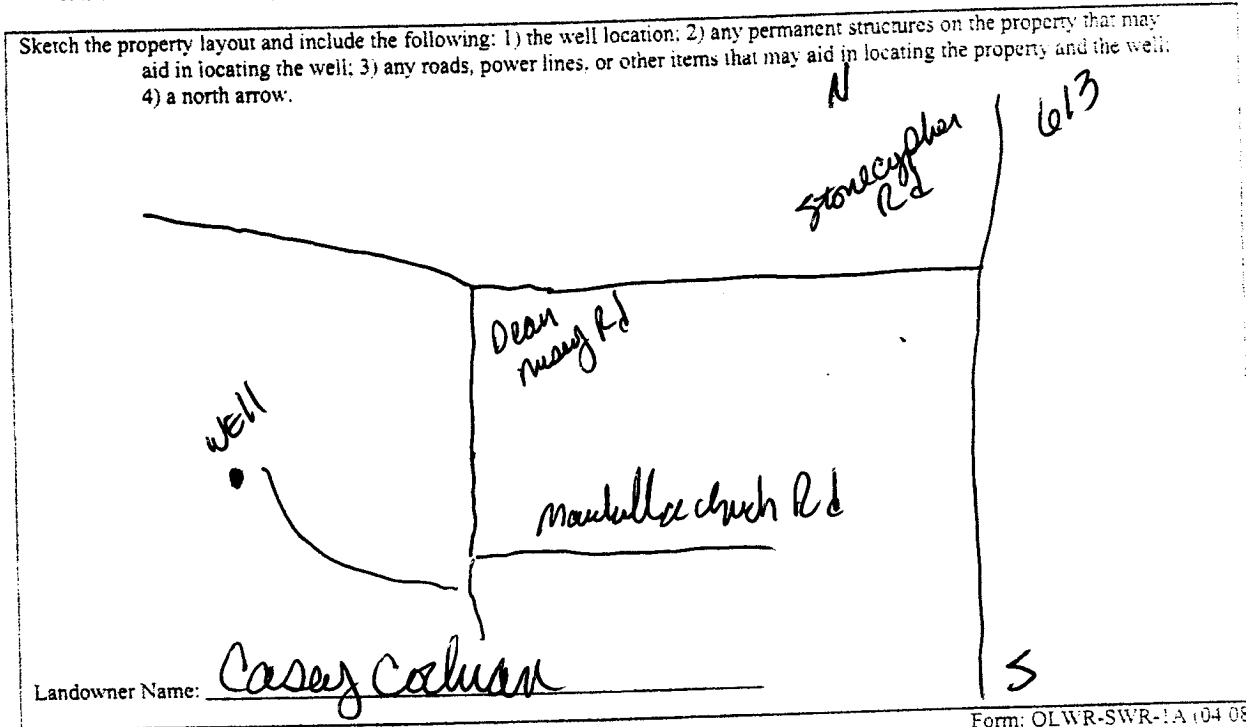 Sketch the property layout and include the following: 1) the well location; 2) any permanent structures on the property that may
aid in locating the well; 3) any roads, power lines, or other items that may aid in locating the property and the well;
4) a north arrow.
N
613
Stonecypher
Rd
Dean
Rd
WEll
Church Rd
S
Landowner Name: Casey Cochran
Form: OLWR-SWR-1A (04 08